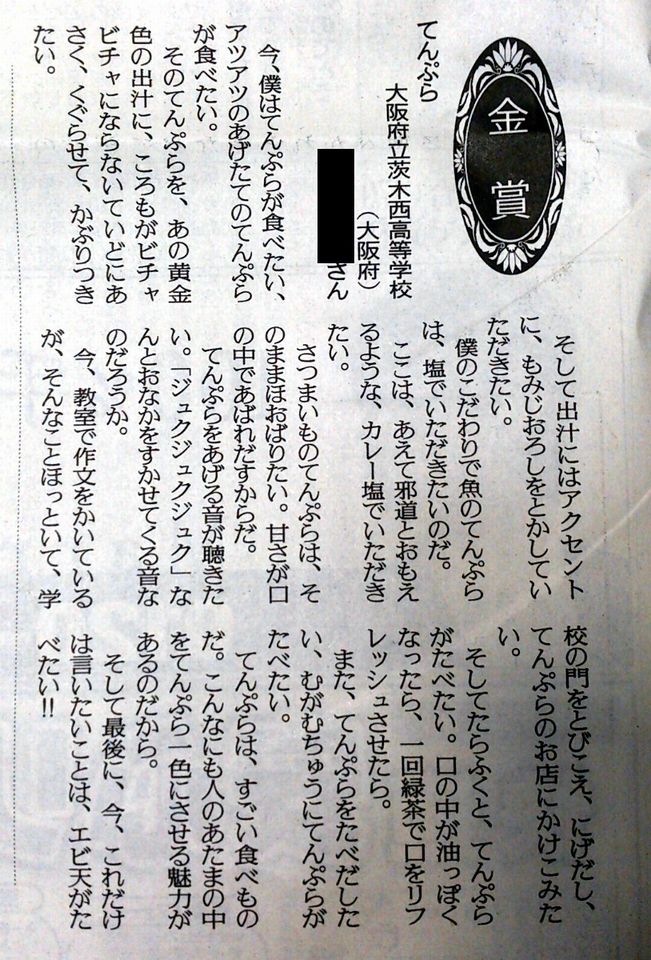 金賞
てんぷら
大阪府立茨木西高等学校
（大阪府）
さん
今、僕はてんぷらが食べたい、
アツアツのあげたてのてんぷら
が食べたい。
そのてんぷらを、あの黄金
色の出汁に、ころもがビチャ
ビチャにならないていどにあ
さく、くぐらせて、かぶりつき
たい。
そして出汁にはアクセント
に、もみじおろしをとかしてい
ただきたい。
僕のこだわりで魚のてんぷら
は、塩でいただきたいのだ。
ここは、あえて邪道とおもえ
るような、カレー塩でいただき
たい。
さつまいものてんぷらは、そ
のままほおばりたい。甘さが口
の中であばれだすからだ。
てんぷらをあげる音が聴きた
い。「ジュクジュクジュク」な
んとおなかをすかせてくる音な
のだろうか。
今、教室で作文をかいている
が、そんなことほっといて、学
校の門をとびこえ、にげだし、
てんぷらのお店にかけこみた
い。
そしてたらふくと、てんぷら
がたべたい。口の中が油っぽく
なったら、一回緑茶で口をリフ
レッシュさせたら。
また、てんぷらをたべだした
い、むがむちゅうにてんぷらが
たべたい。
てんぷらは、すごい食べもの
だ。こんなにも人のあたまの中
をてんぷら一色にさせる魅力が
あるのだから。
そして最後に、今、これだけ
は言いたいことは、エビ天がた
べたい!!